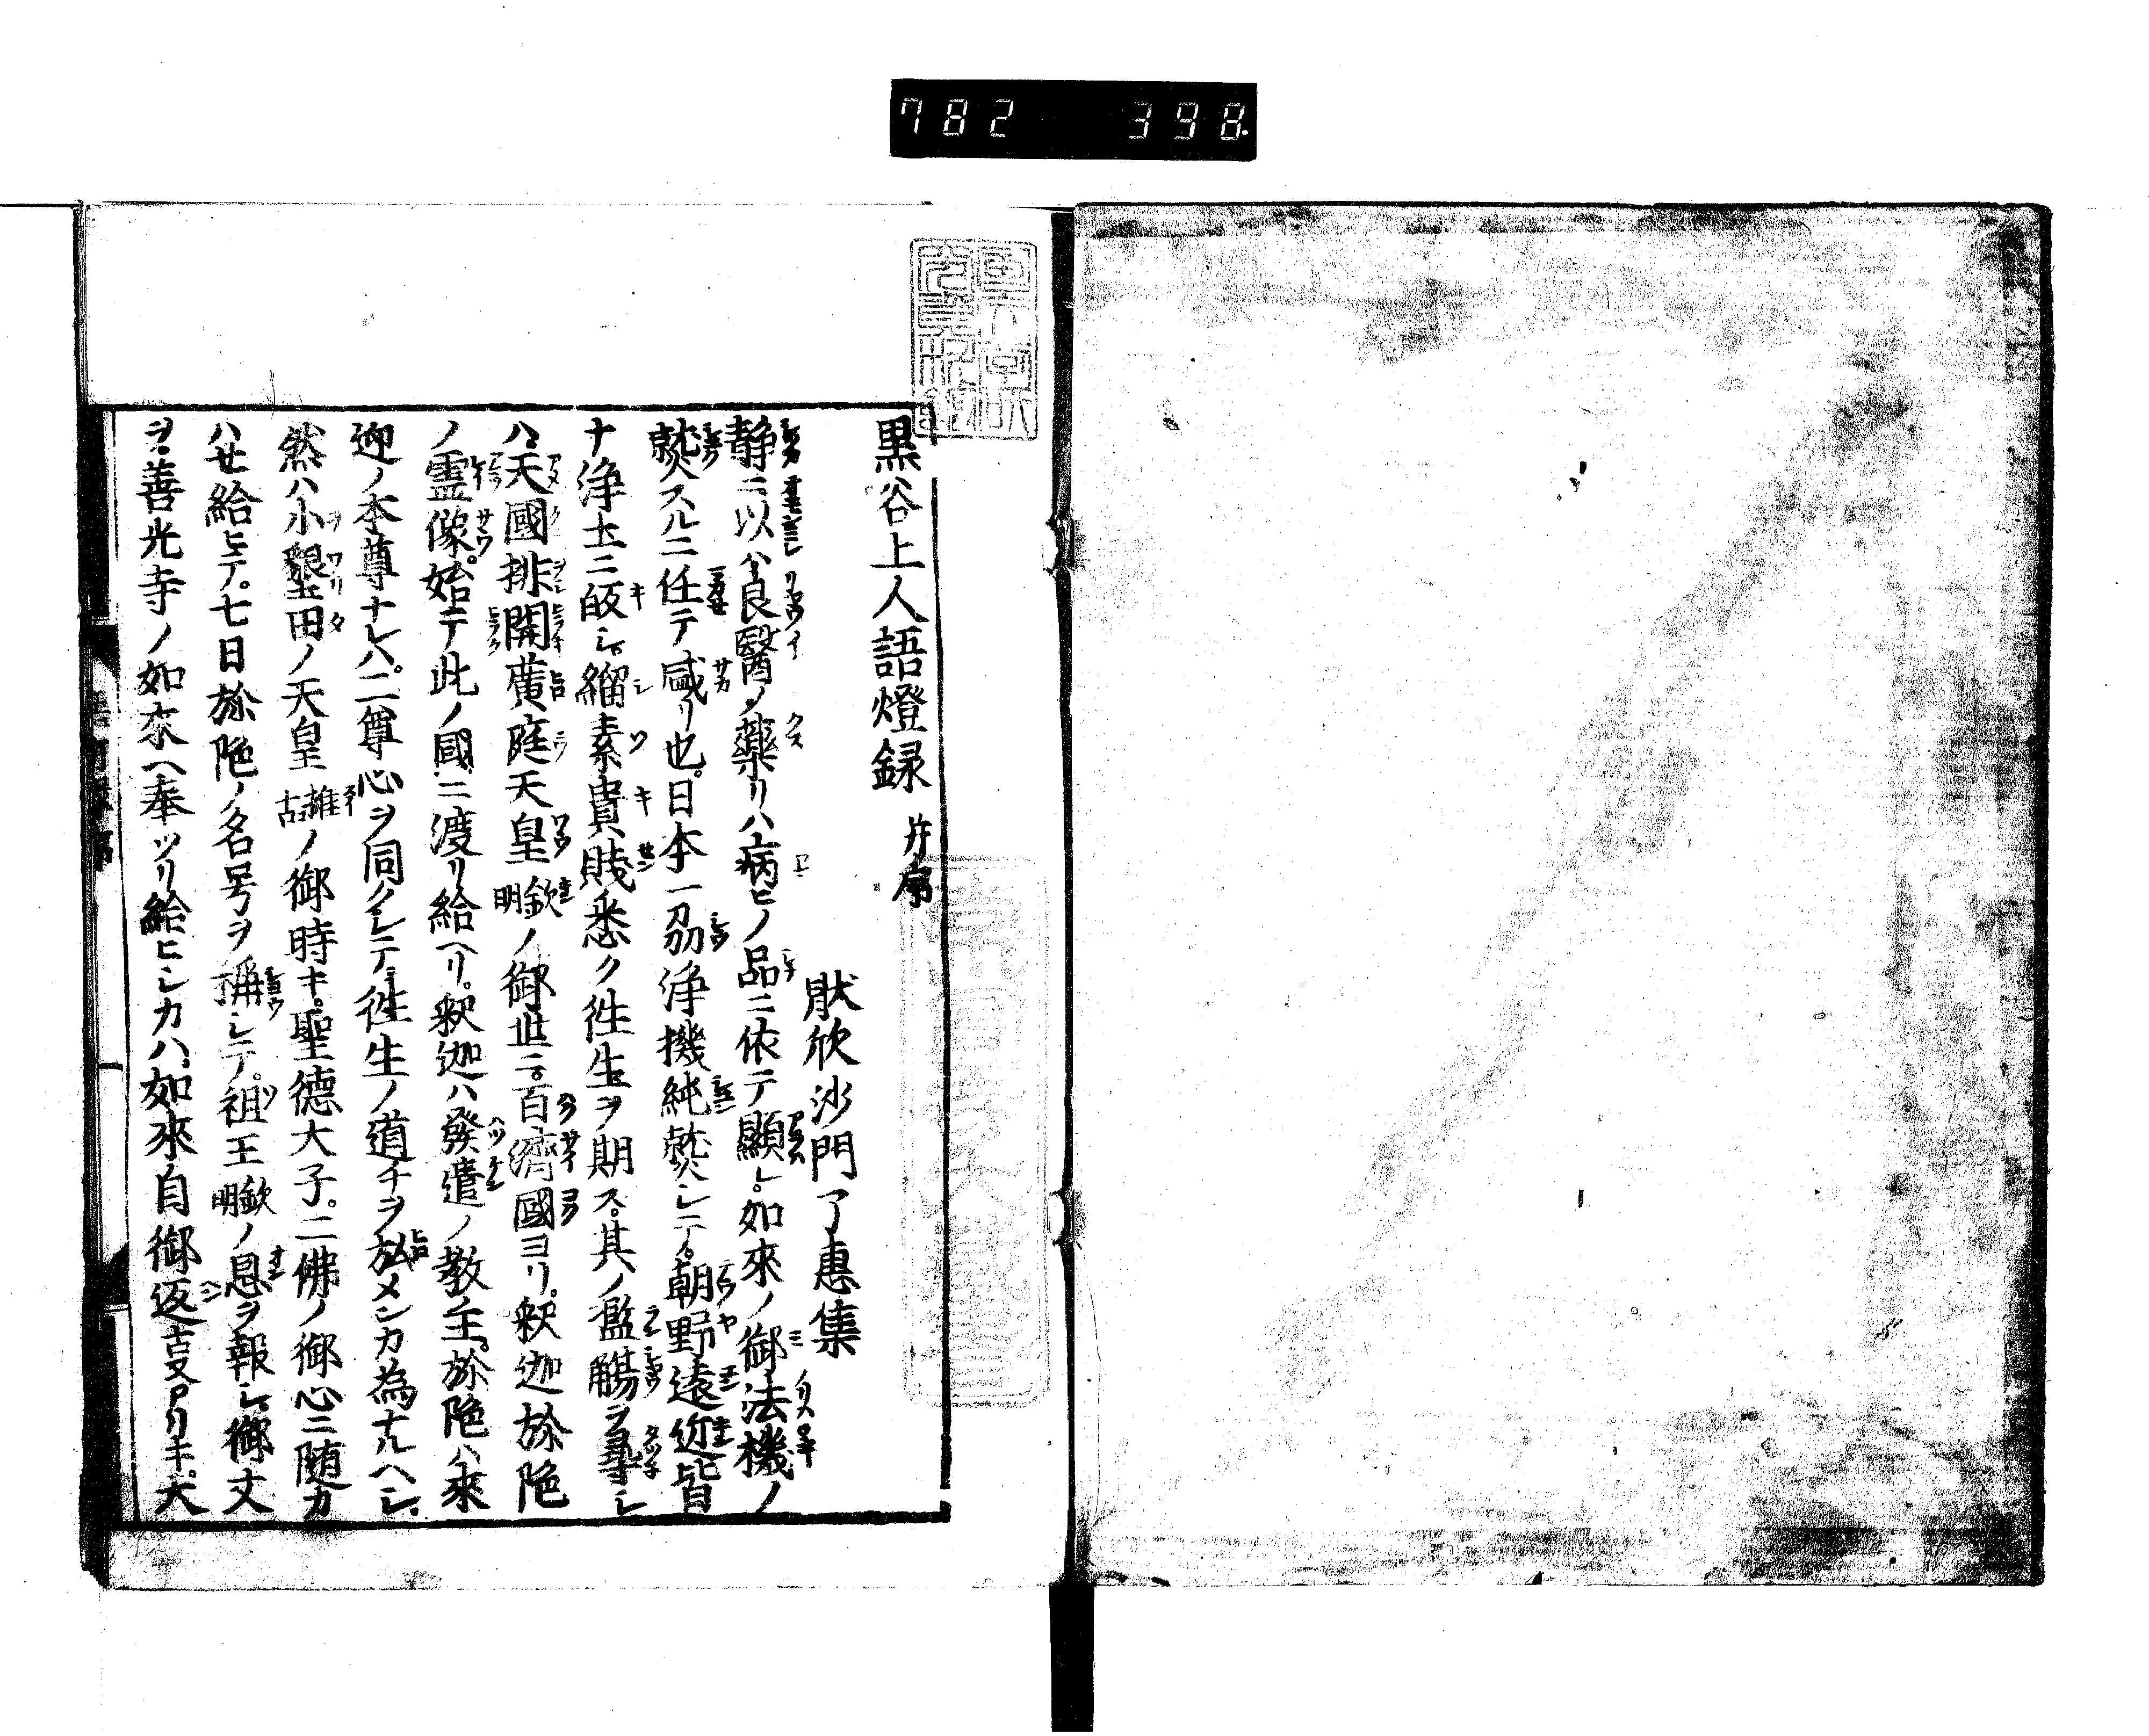 782 398
黒谷上人語燈録 并序
猒欣沙門了惠集
静ニ以ハ良醫ノ藥リハ病ヒノ品ニ依テ顯レ。如來ノ御法機ノ
熟スルニ任テ咸リ也。日本一刕浄機純熟シテ。朝野遠近皆
ナ浄土ニ皈シ緇素貴賤悉ク徃生ヲ期ス。其ノ濫觴ヲ尋レ
ハ。天國排開廣庭天皇欽明ノ御世ニ。百濟國ヨリ。釈迦弥陁
ノ霊像。始テ此ノ國ニ渡リ給ヘリ。釈迦ハ發遣ノ教主。弥陁ハ來
迎ノ本尊ナレハ。二尊心ヲ同クシテ徃生ノ道チヲ弘メンカ為ナルヘシ。
然ハ小墾田ノ天皇推古ノ御時キ。聖德大子。二佛ノ御心ニ随カ
ハせ給ヒテ。七日弥陁ノ名号ヲ稱シテ。祖王欽明ノ恩ヲ報シ御丈
ヲ。善光寺ノ如來ヘ奉ツリ給ヒシカハ。如來自御返叓アリキ。大